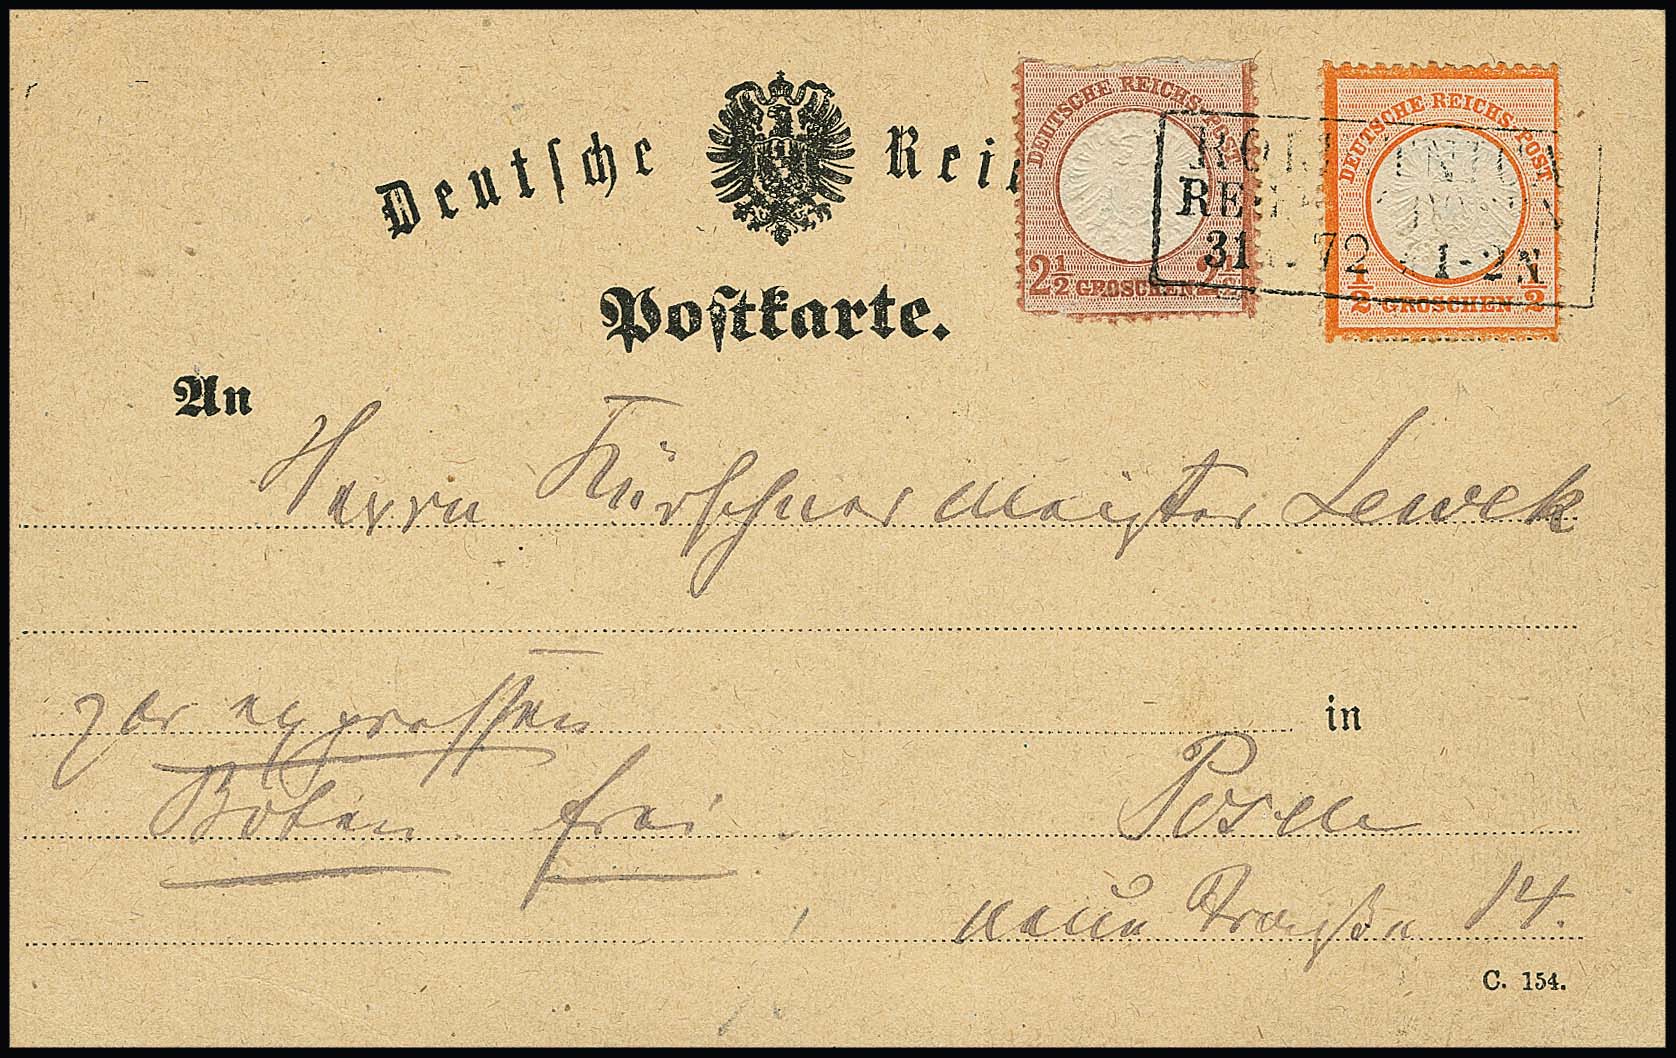 Deutsche Reich
Postkarte.
DEUTSCHE REICHS-POST
2½ GROSCHEN 2½
DEUTSCHE REICHS-POST
½ GROSCHEN ½
31 72 1-2N
An
Herrn Kürschnermeister Lewek
per expressen
in
Boten frei.
Posen
neue Straße 14.
C. 154.